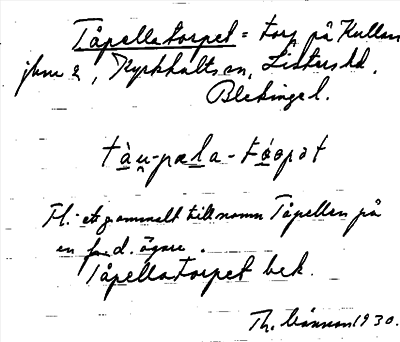 Tåpellatorpet = torp på Kullan
Kyrkhults sn, Listers hd,
Blekinge l.
tàu-pæla-tóopət
ett gammalt tillnamn Tåpellen på
en f.d. ägare.
Tåpellatorpet bek.
Th. 1930.